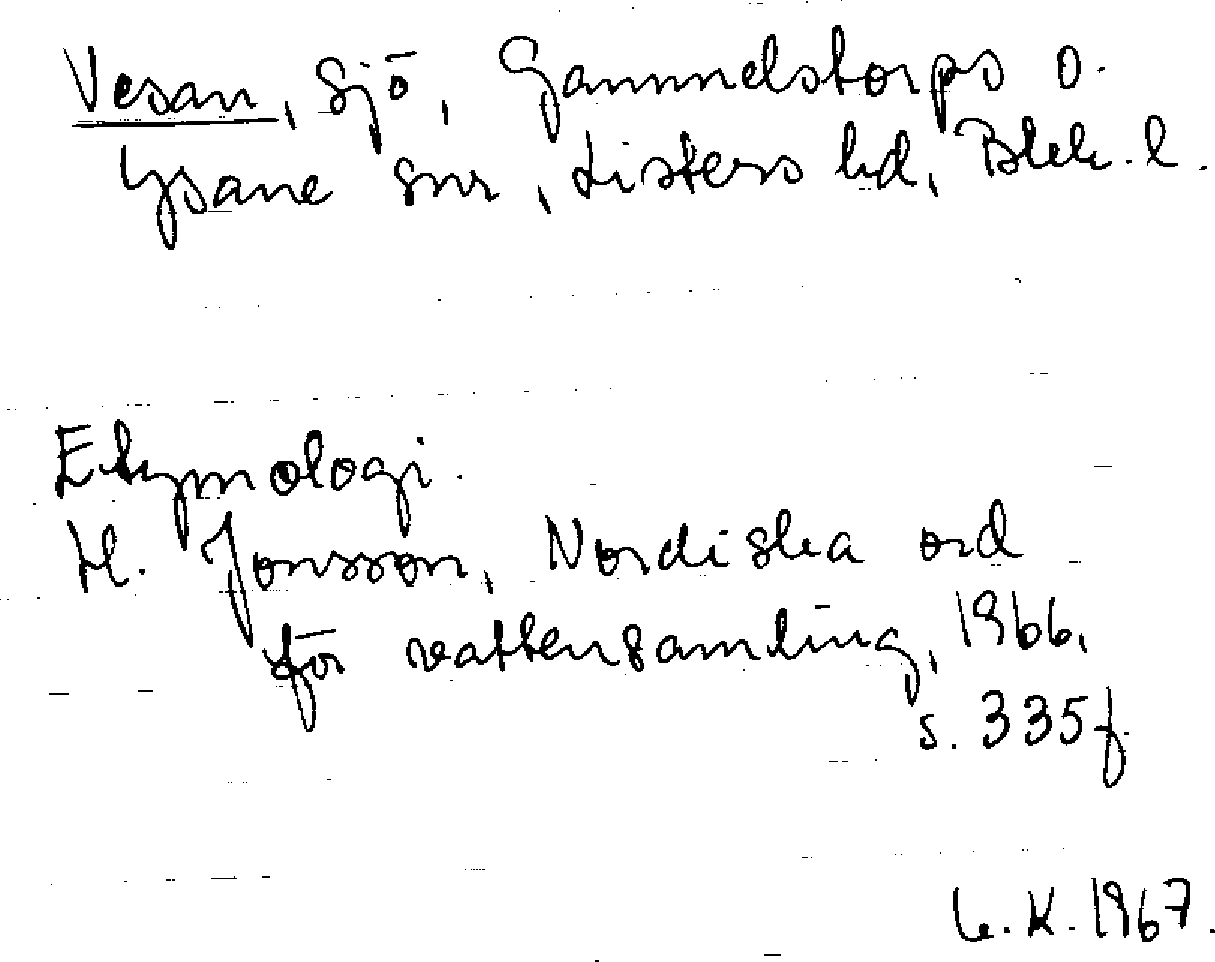 Vesan, sjö, Gammelstorps o.
Ysane snr, Listers hd, Blek. l.
Etymologi.
H. Jonsson, Nordiska ord
för vattensamling, 1966,
s. 335f
K. 1967.